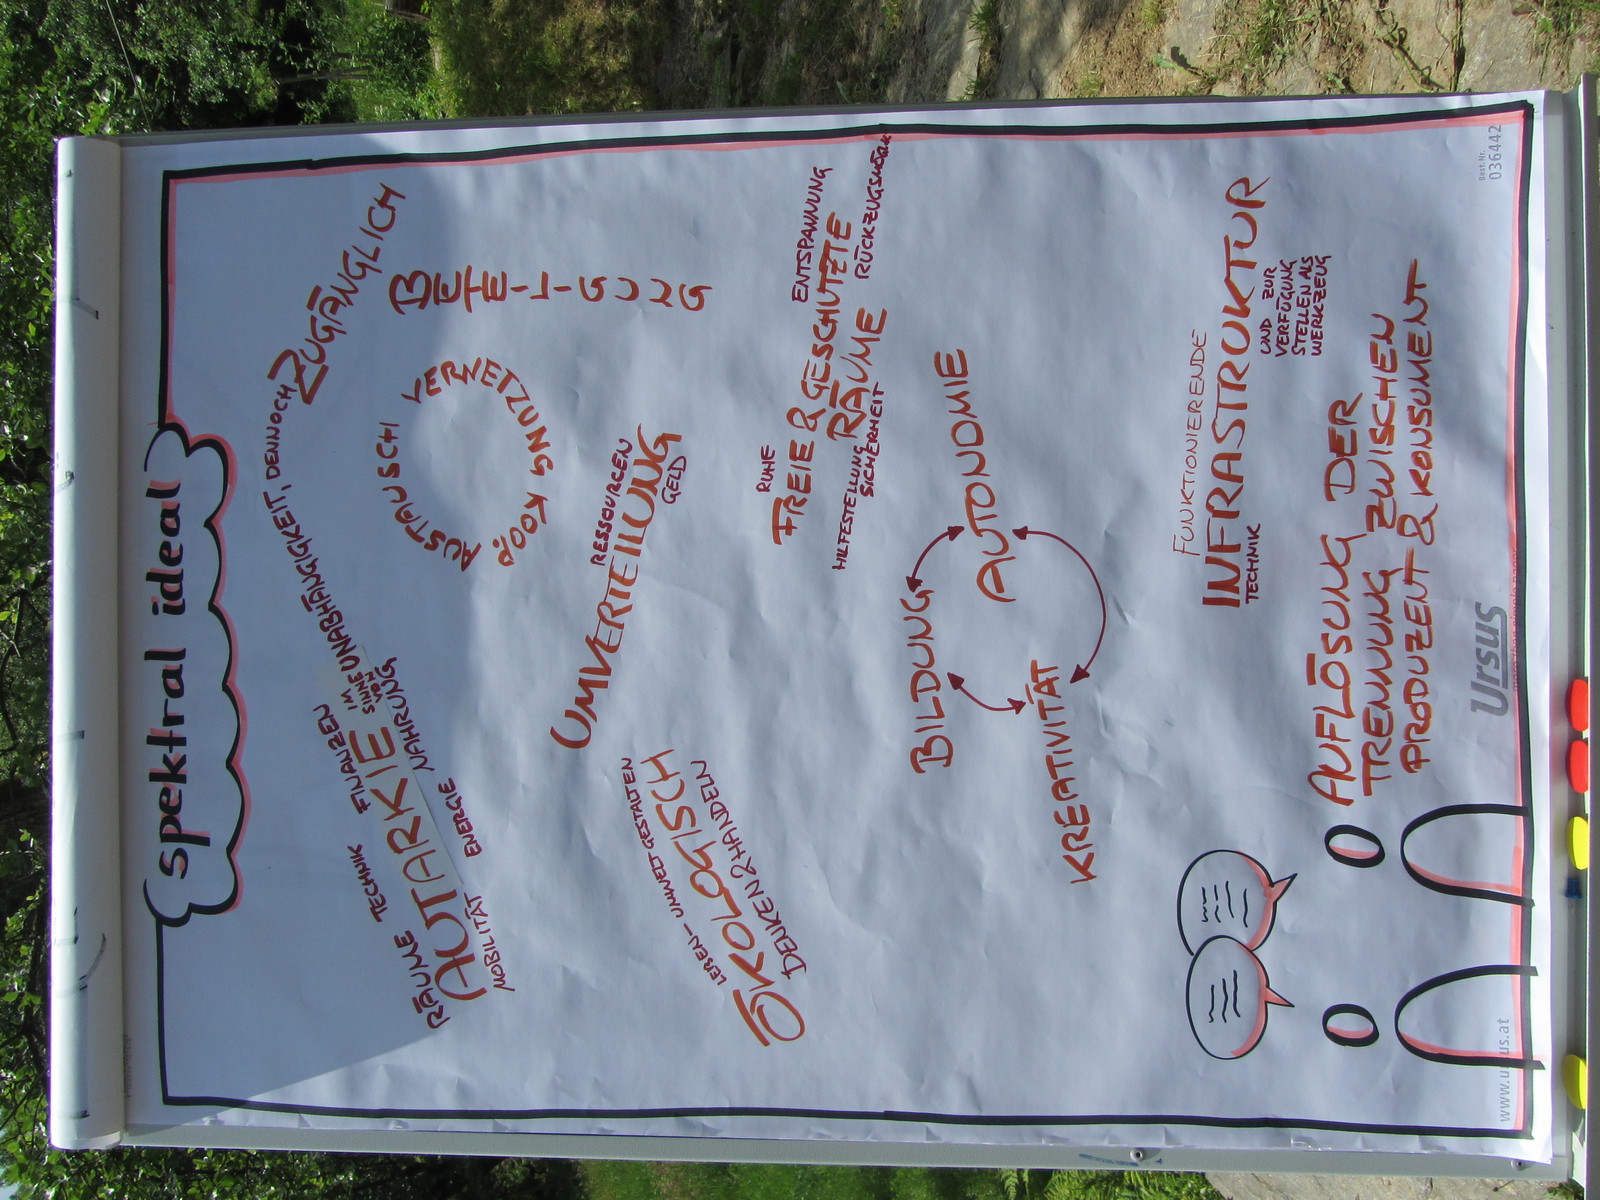 spektral ideal
RÄUME TECHNIK FINANZEN
AUTARKIE IM SINNE VON UNABHÄNGIGKEIT, DENNOCH ZUGÄNGLICH
MOBILITÄT ENERGIE NAHRUNG
AUSTAUSCH VERNETZUNG KOOP.
BETEILIGUNG
RESSOURCEN
UMVERTEILUNG
GELD
LEBEN- UMWELT GESTALTEN
ÖKOLOGISCH
DENKEN & HANDELN
RUHE ENTSPANNUNG
FREIE & GESCHÜTZTE
RÄUME
HILFESTELLUNG
SICHERHEIT
BILDUNG
AUTONOMIE
KREATIVITÄT
FUNKTIONIERENDE
INFRASTRUKTUR
TECHNIK
UND ZUR
VERFÜGUNG
STELLEN ALS
WERKZEUG
AUFLÖSUNG DER
TRENNUNG ZWISCHEN
PRODUZENT & KONSUMENT
Ursus
Best. Nr.
036442